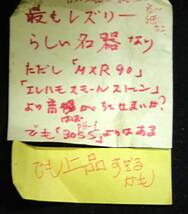 最もレズリー
らしい名器なり
ただし「MXR90」
「エレハモスモールストーン」
より音幅がちせまいか?
でも「3055」よりはある
でも上品すぎる
かも